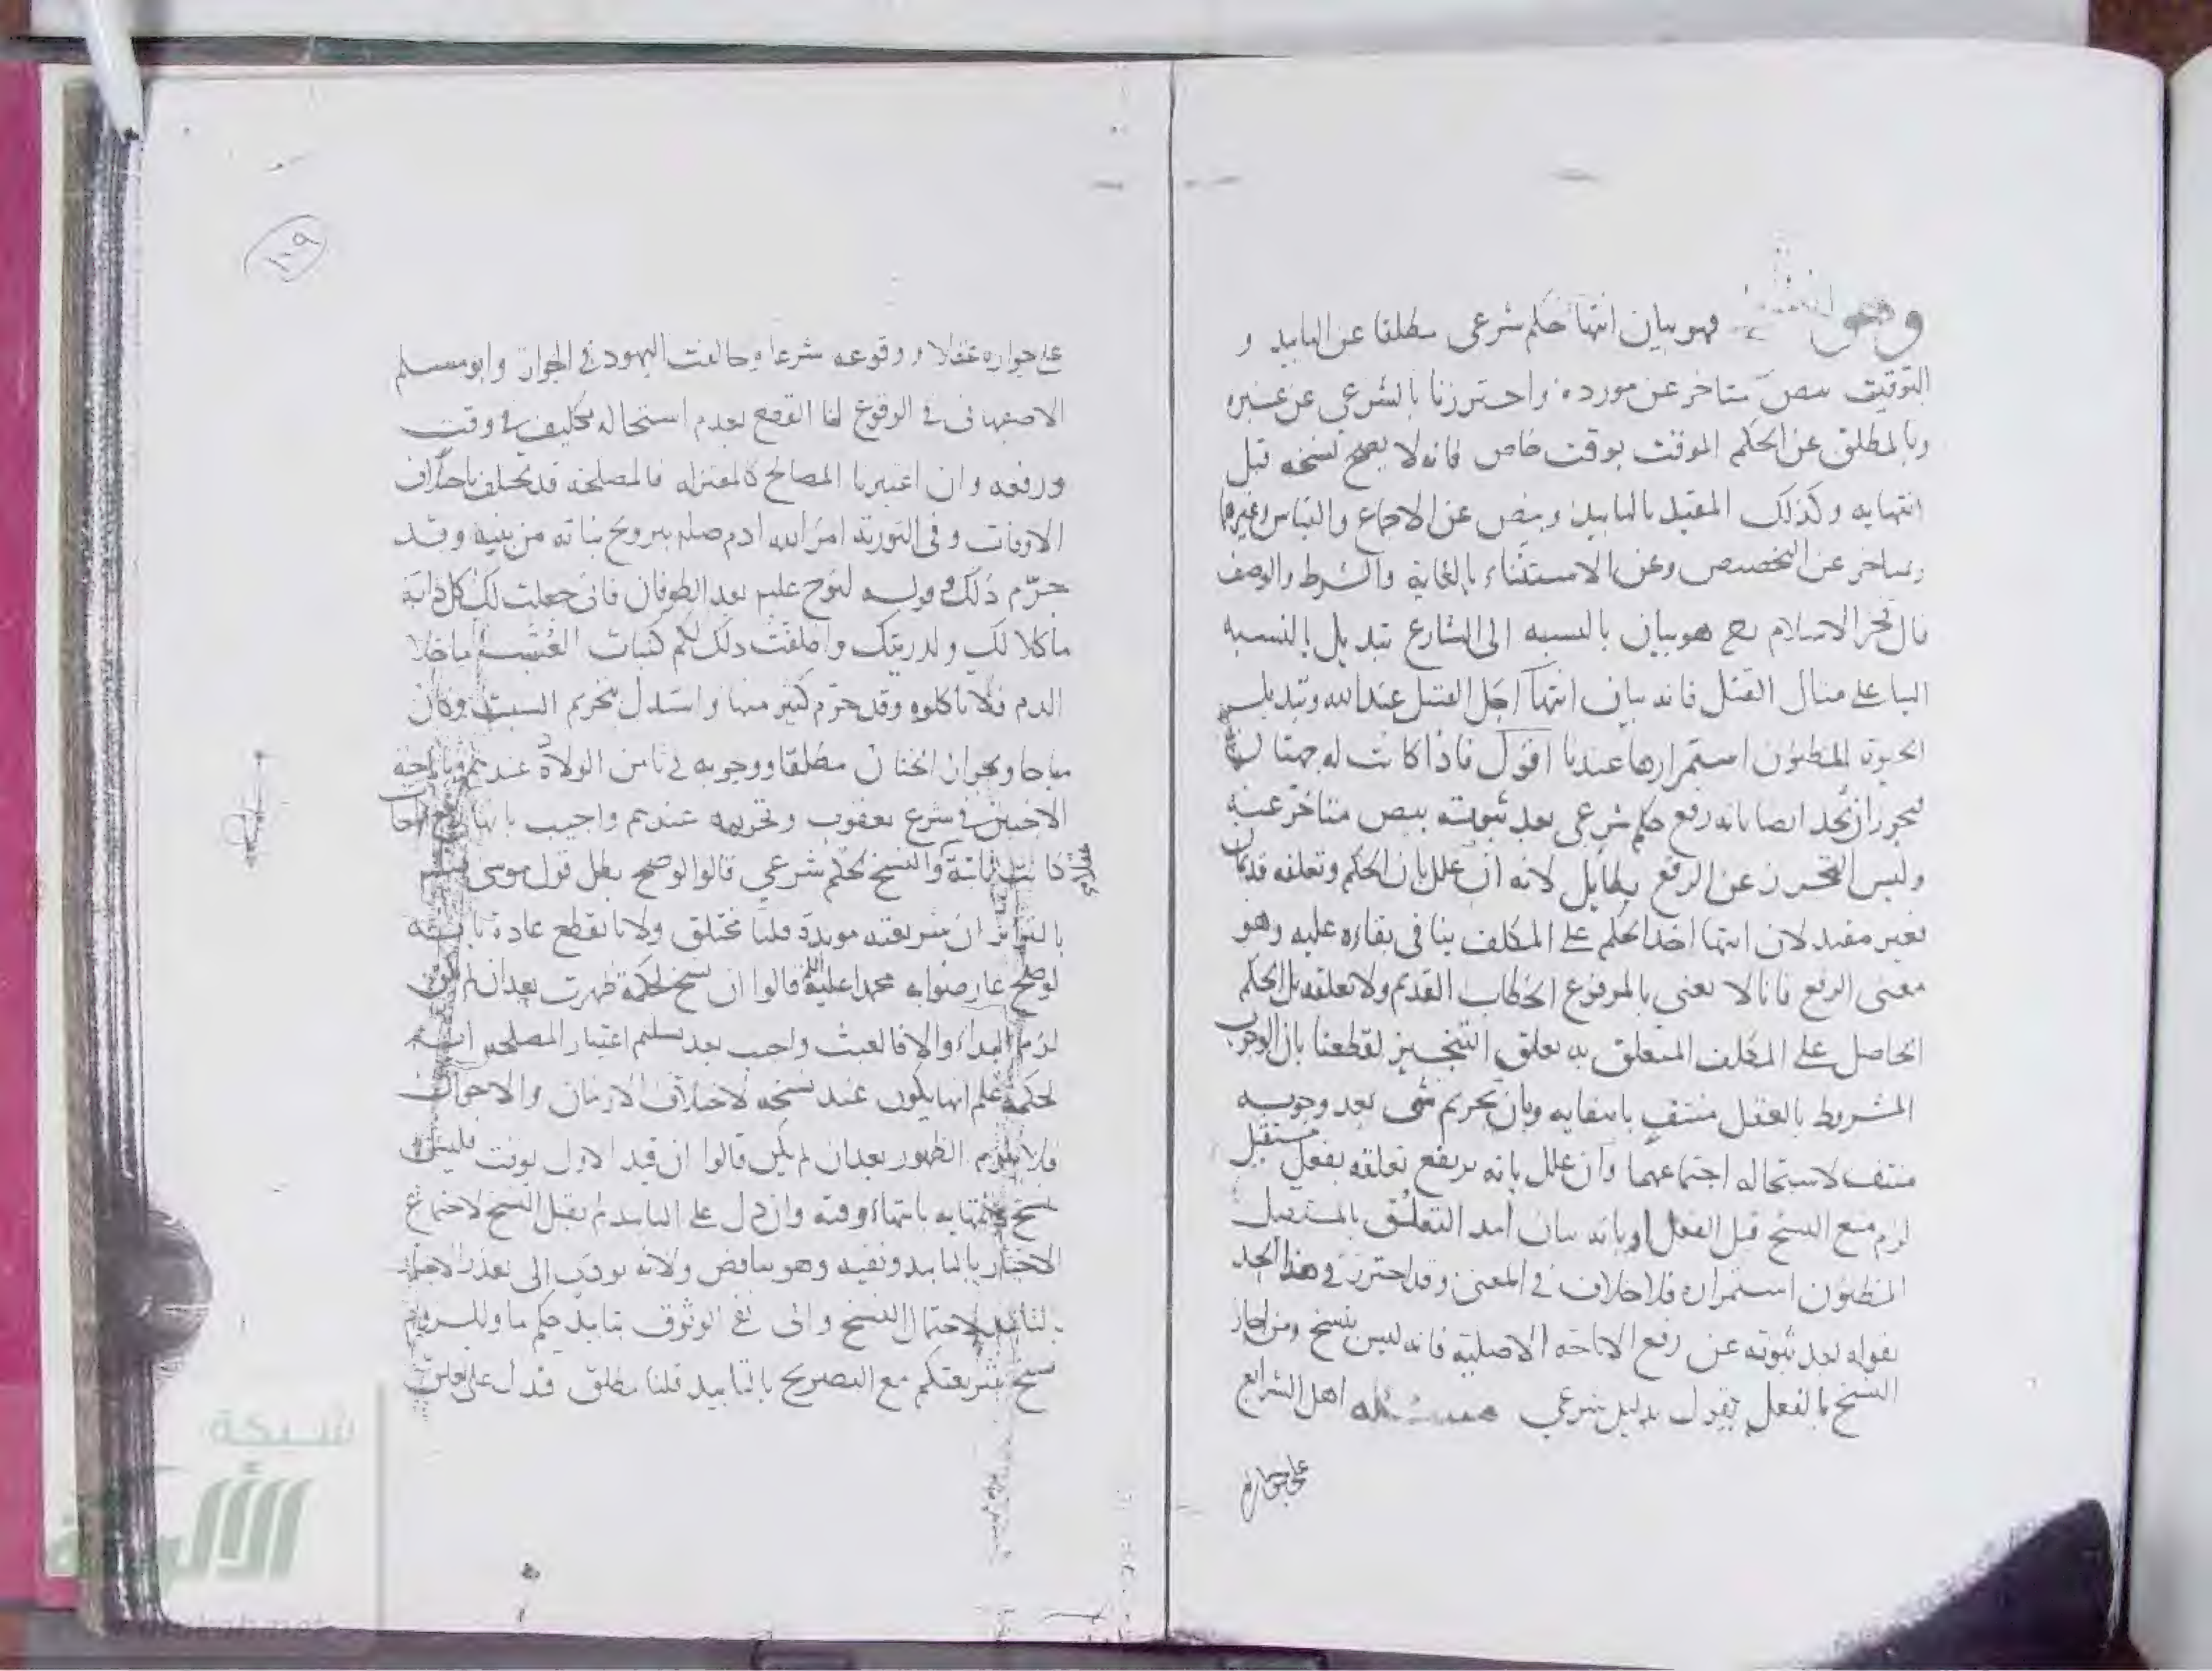 فهو بيان انتها حكم شرعى مطلقا عن التابيد و
التوقيت بنص متاخر عن مورده واحترزنا بالشرعى عن غيره
وبالمطلق عن الحكم الموقت بوقت خاص فانه لا يصح نسخه قبل
انتهايه وكذلك المقيد بالتابيد وبنص عن الاجماع والقياس وغيرهما
ومتاخر عن التخصيص وعن الاستثناء بالغاية والشرط والوصف
قال فخر الاسلام رح هو بيان بالنسبه الى الشارع تبديل بالنسبه
الينا على مثال القتل فانه بيان انتها اجل القتيل عند الله وتبديل
الحيوة المظنون استمرارها عندنا اقول فاذا كانت له جهتان
فيجوز ان يحد ايضا بانه رفع حكم شرعى بعد ثبوته بنص متاخر عنه
وليس التحرز عن الرفع بطايل لانه ان علل بان الحكم وتعلقه قديمان
فغير مفيد لان انتها امد الحكم على المكلف ينافى بقاءه عليه وهو
معنى الرفع فانا لا نعنى بالمرفوع الخطاب القديم ولا تعلقه بل الحكم
الحاصل على المكلف المتعلق به تعلق التنجيز لقطعنا بان الوجوب
المشروط بالعقل منتف بانتفايه وبان تحريم شى بعد وجوبه
منتف لاستحاله اجتماعهما وان علل بانه يرتفع تعلقه بفعل مستقبل
لزم منع النسخ قبل الفعل او بانه بيان امد التعلق بالمستقبل
المظنون استمراره فلا خلاف فى المعنى وقد احترز فى هذا الحد
بقوله بعد ثبوته عن رفع الاباحه الاصليه فانه ليس بنسخ ومن اجاز
النسخ بالفعل يقول بدليل شرعى مسئله اهل الشرايع
على جوازه
على جوازه عقلا ووقوعه شرعا وخالفت اليهود فى الجواز وابو مسلم
الاصبهانى فى الوقوع لنا القطع بعدم استحاله تكليف فى وقت
ورفعه وان اعتبرنا المصالح كالمعتزله فالمصلحه قد تختلف باختلاف
الاوقات وفى التورىة امر الله ادم صلم بتزويج بناته من بنيه وقد
حرّم ذلك وقوله لنوح عليم بعد الطوفان فانى جعلت لك كل دابه
ماكلا لك ولذريتك واطلقت ذلك لكم كنبات العشب ما خلا
الدم فلا تاكلوه وقد حرّم كثير منها واستدل بتحريم السبت وكان
مباحا وبجواز الختان مطلقا ووجوبه فى ثامن الولادة عندهم وباباحه
الاختين فى شرع يعقوب وتحريمه عندهم واجيب بانها
كانت ثابتة والنسخ لحكم شرعي قالوا لو صح بطل قول موسى
بالتواتر ان شريعته موبدة قلنا مختلق ولانا نقطع عادة بانه
لو صح عارضوا به محمدا عليه قالوا ان نسخ لحكمة ظهرت بعد ان لم تكن
لزم البداء والا فالعبث واجيب بعد تسليم اعتبار المصلحه انه
لحكمة علم انها يكون عند نسخه لاختلاف الازمان والاحوال
فلا يلزم الظهور بعد ان لم يكن قالوا ان قيد الاول بوقت فليس
بنسخ لانتهايه بانتهاء وقته وان دل على التابيد لم يقبل النسخ لاجتماع
الاخبار بالتابيد ونفيه وهو تناقض ولانه يودى الى تعذر الاخبار
بالتابيد لاحتمال النسخ والى نفى الوثوق بتابيد حكم ما وللزوم
نسخ شريعتكم مع التصريح بالتابيد قلنا مطلق فدل على تعلق
١٠٩
شبكة
الألوكة